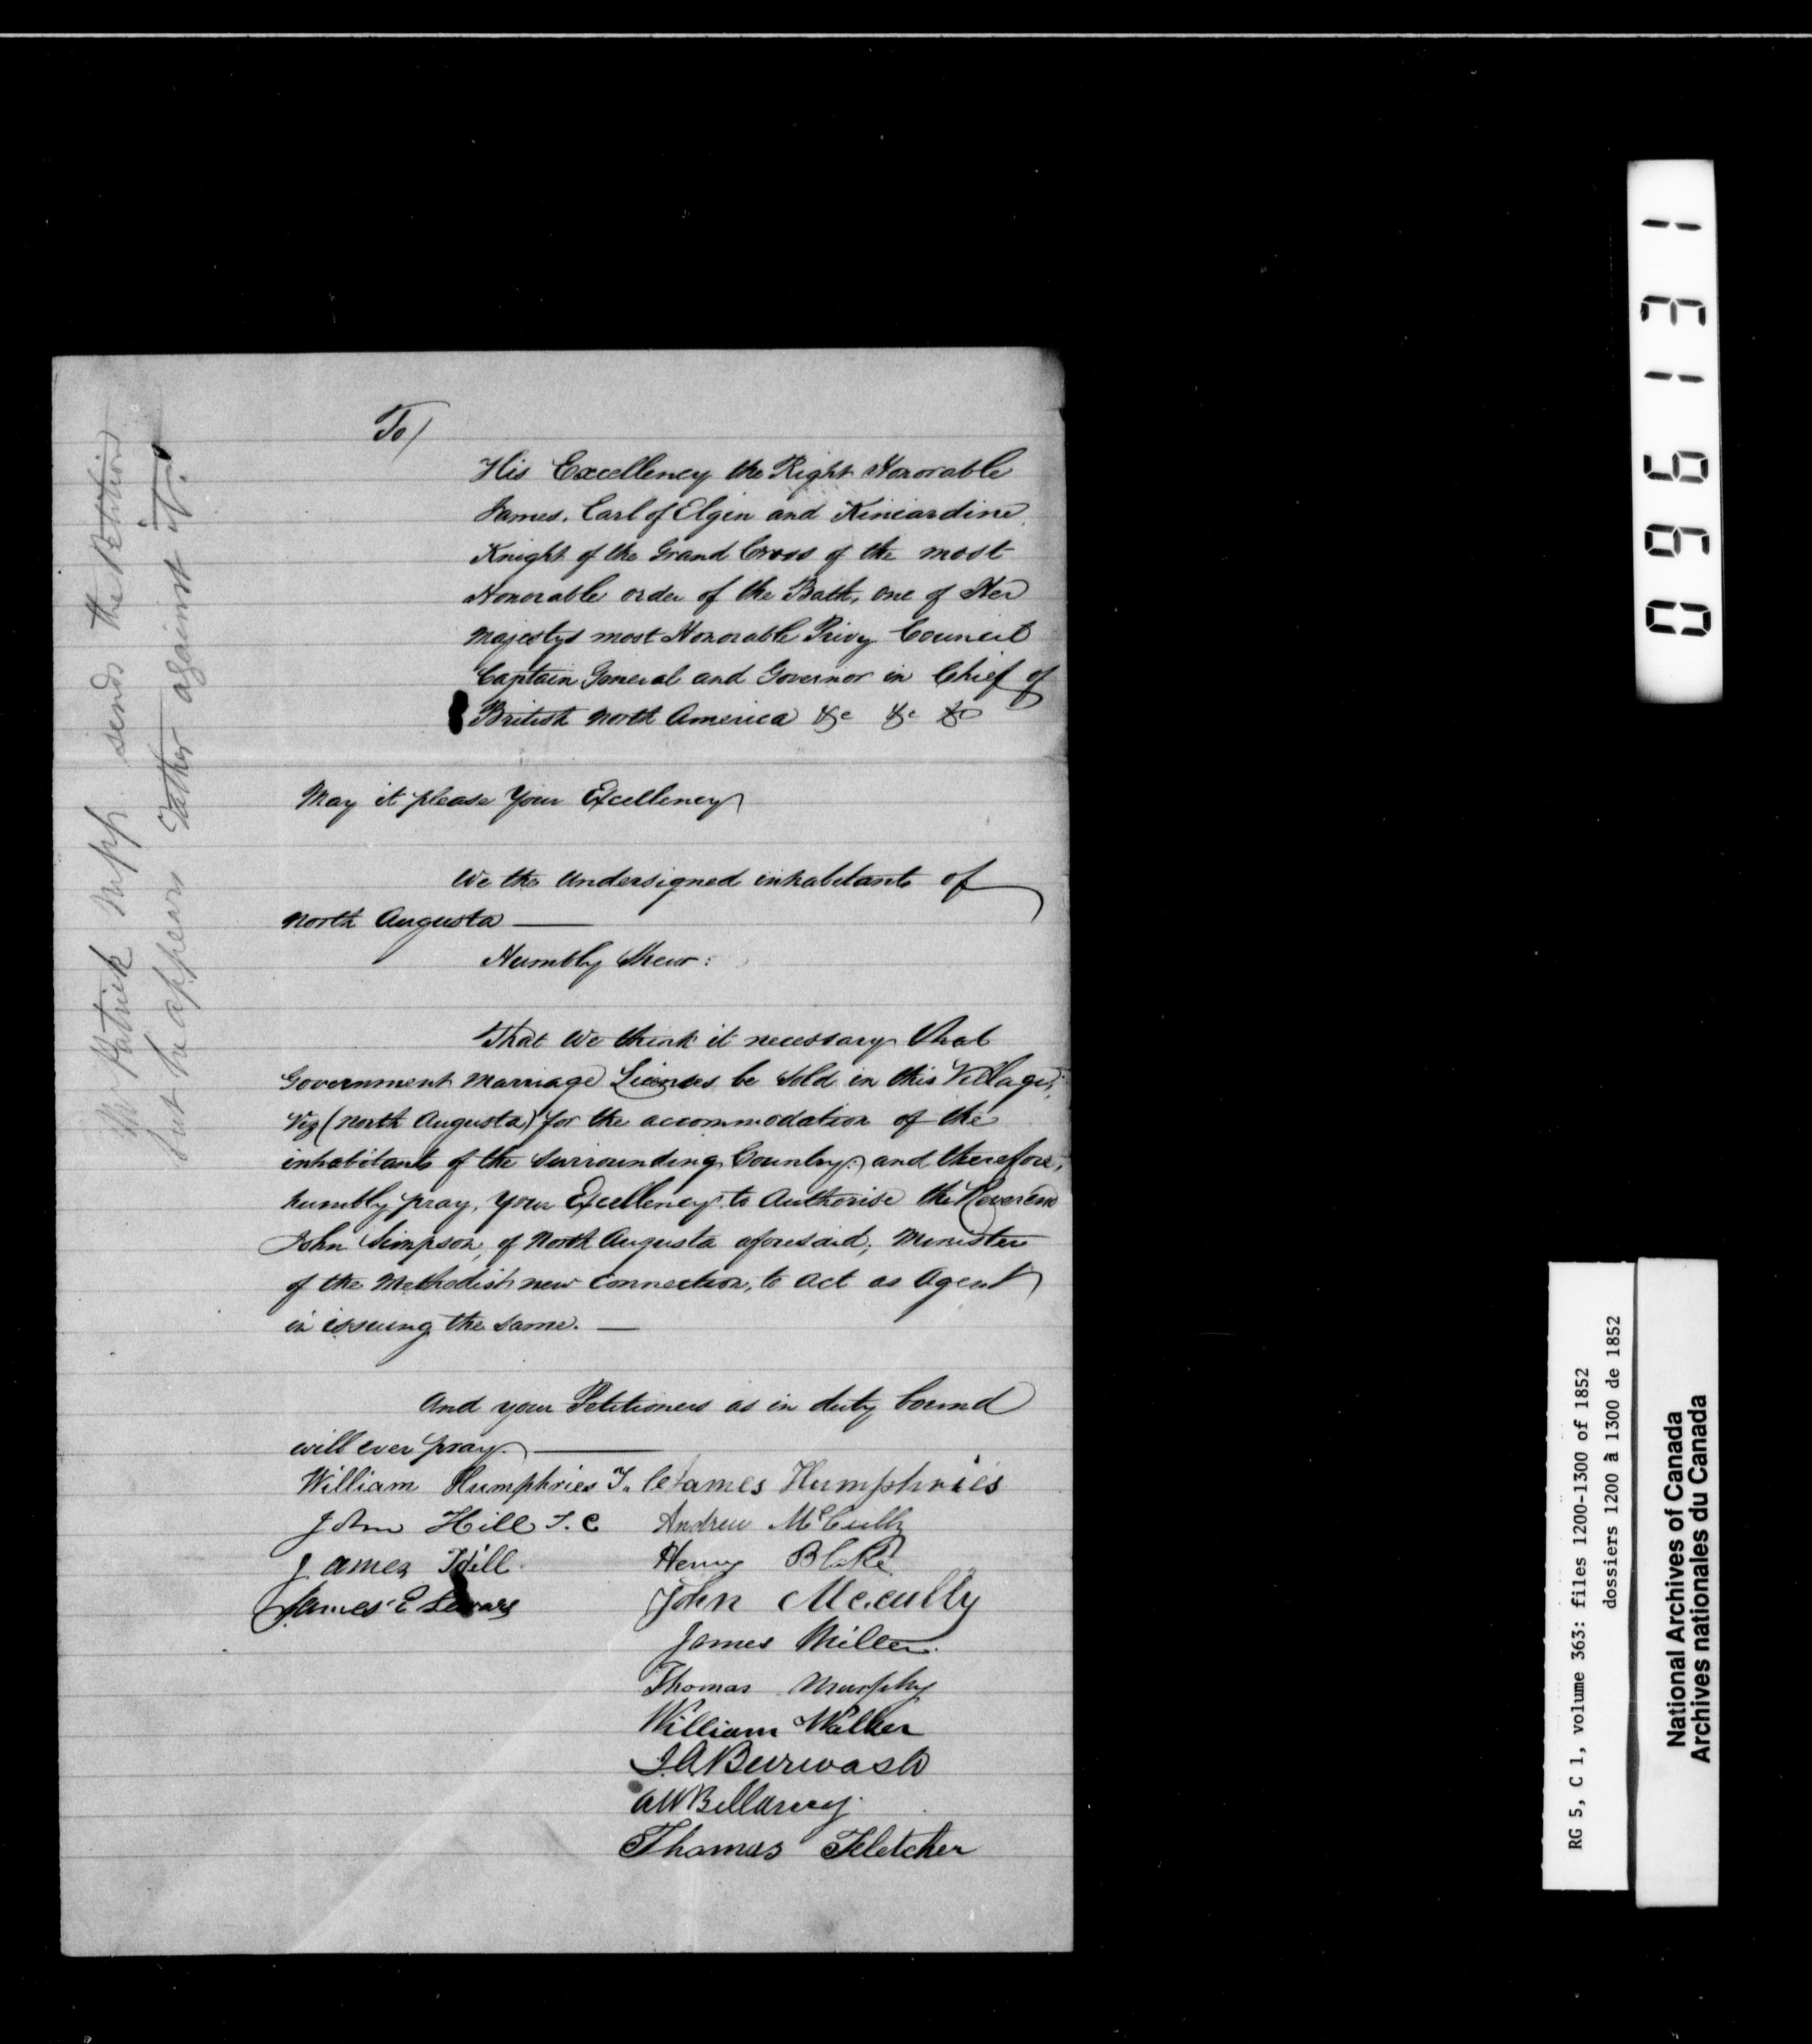 To/
His Excellency the Right Honorable
James, Earl of Elgin and Kincardine
Knight of the Grand Cross of the most
Honorable order of the Bath, one of Her
Majestys most Honorable Privy Council
Captain General and Governor in Chief of
British North America &c &c &c
May it please Your Excellency
We the Undersigned inhabitants of
North Augusta —
Humbly Shew:
That We think it necessary that
Government Marriage Licenses be Sold in this Village,
Viz (North Augusta) for the accommodation of the
inhabitants of the Surrounding Country: and therefore,
humbly pray, Your Excellency to Authorise the Reverend
John Simpson, of North Augusta aforesaid, Minister
of the Methodist new Connection, to Act as Agent
in issuing the Same. —
And your Petitioners as in duty bound
will ever pray. —
William Humphries T. C James Humphries
John Hill T. C Andrew McCully
James Hill Henry Blake
James E
John Mc.cully
James Miller
Thomas Murphy
William Walker
J.A. Burwash
AW Bellamy
Thomas Fletcher
Mr Patrick Mpp sends the Petition
but he appears rather against it.
096131
RG 5, C 1, volume 363: files 1200-1300 of 1852
dossiers 1200 à 1300 de 1852
National Archives of Canada
Archives nationales du Canada